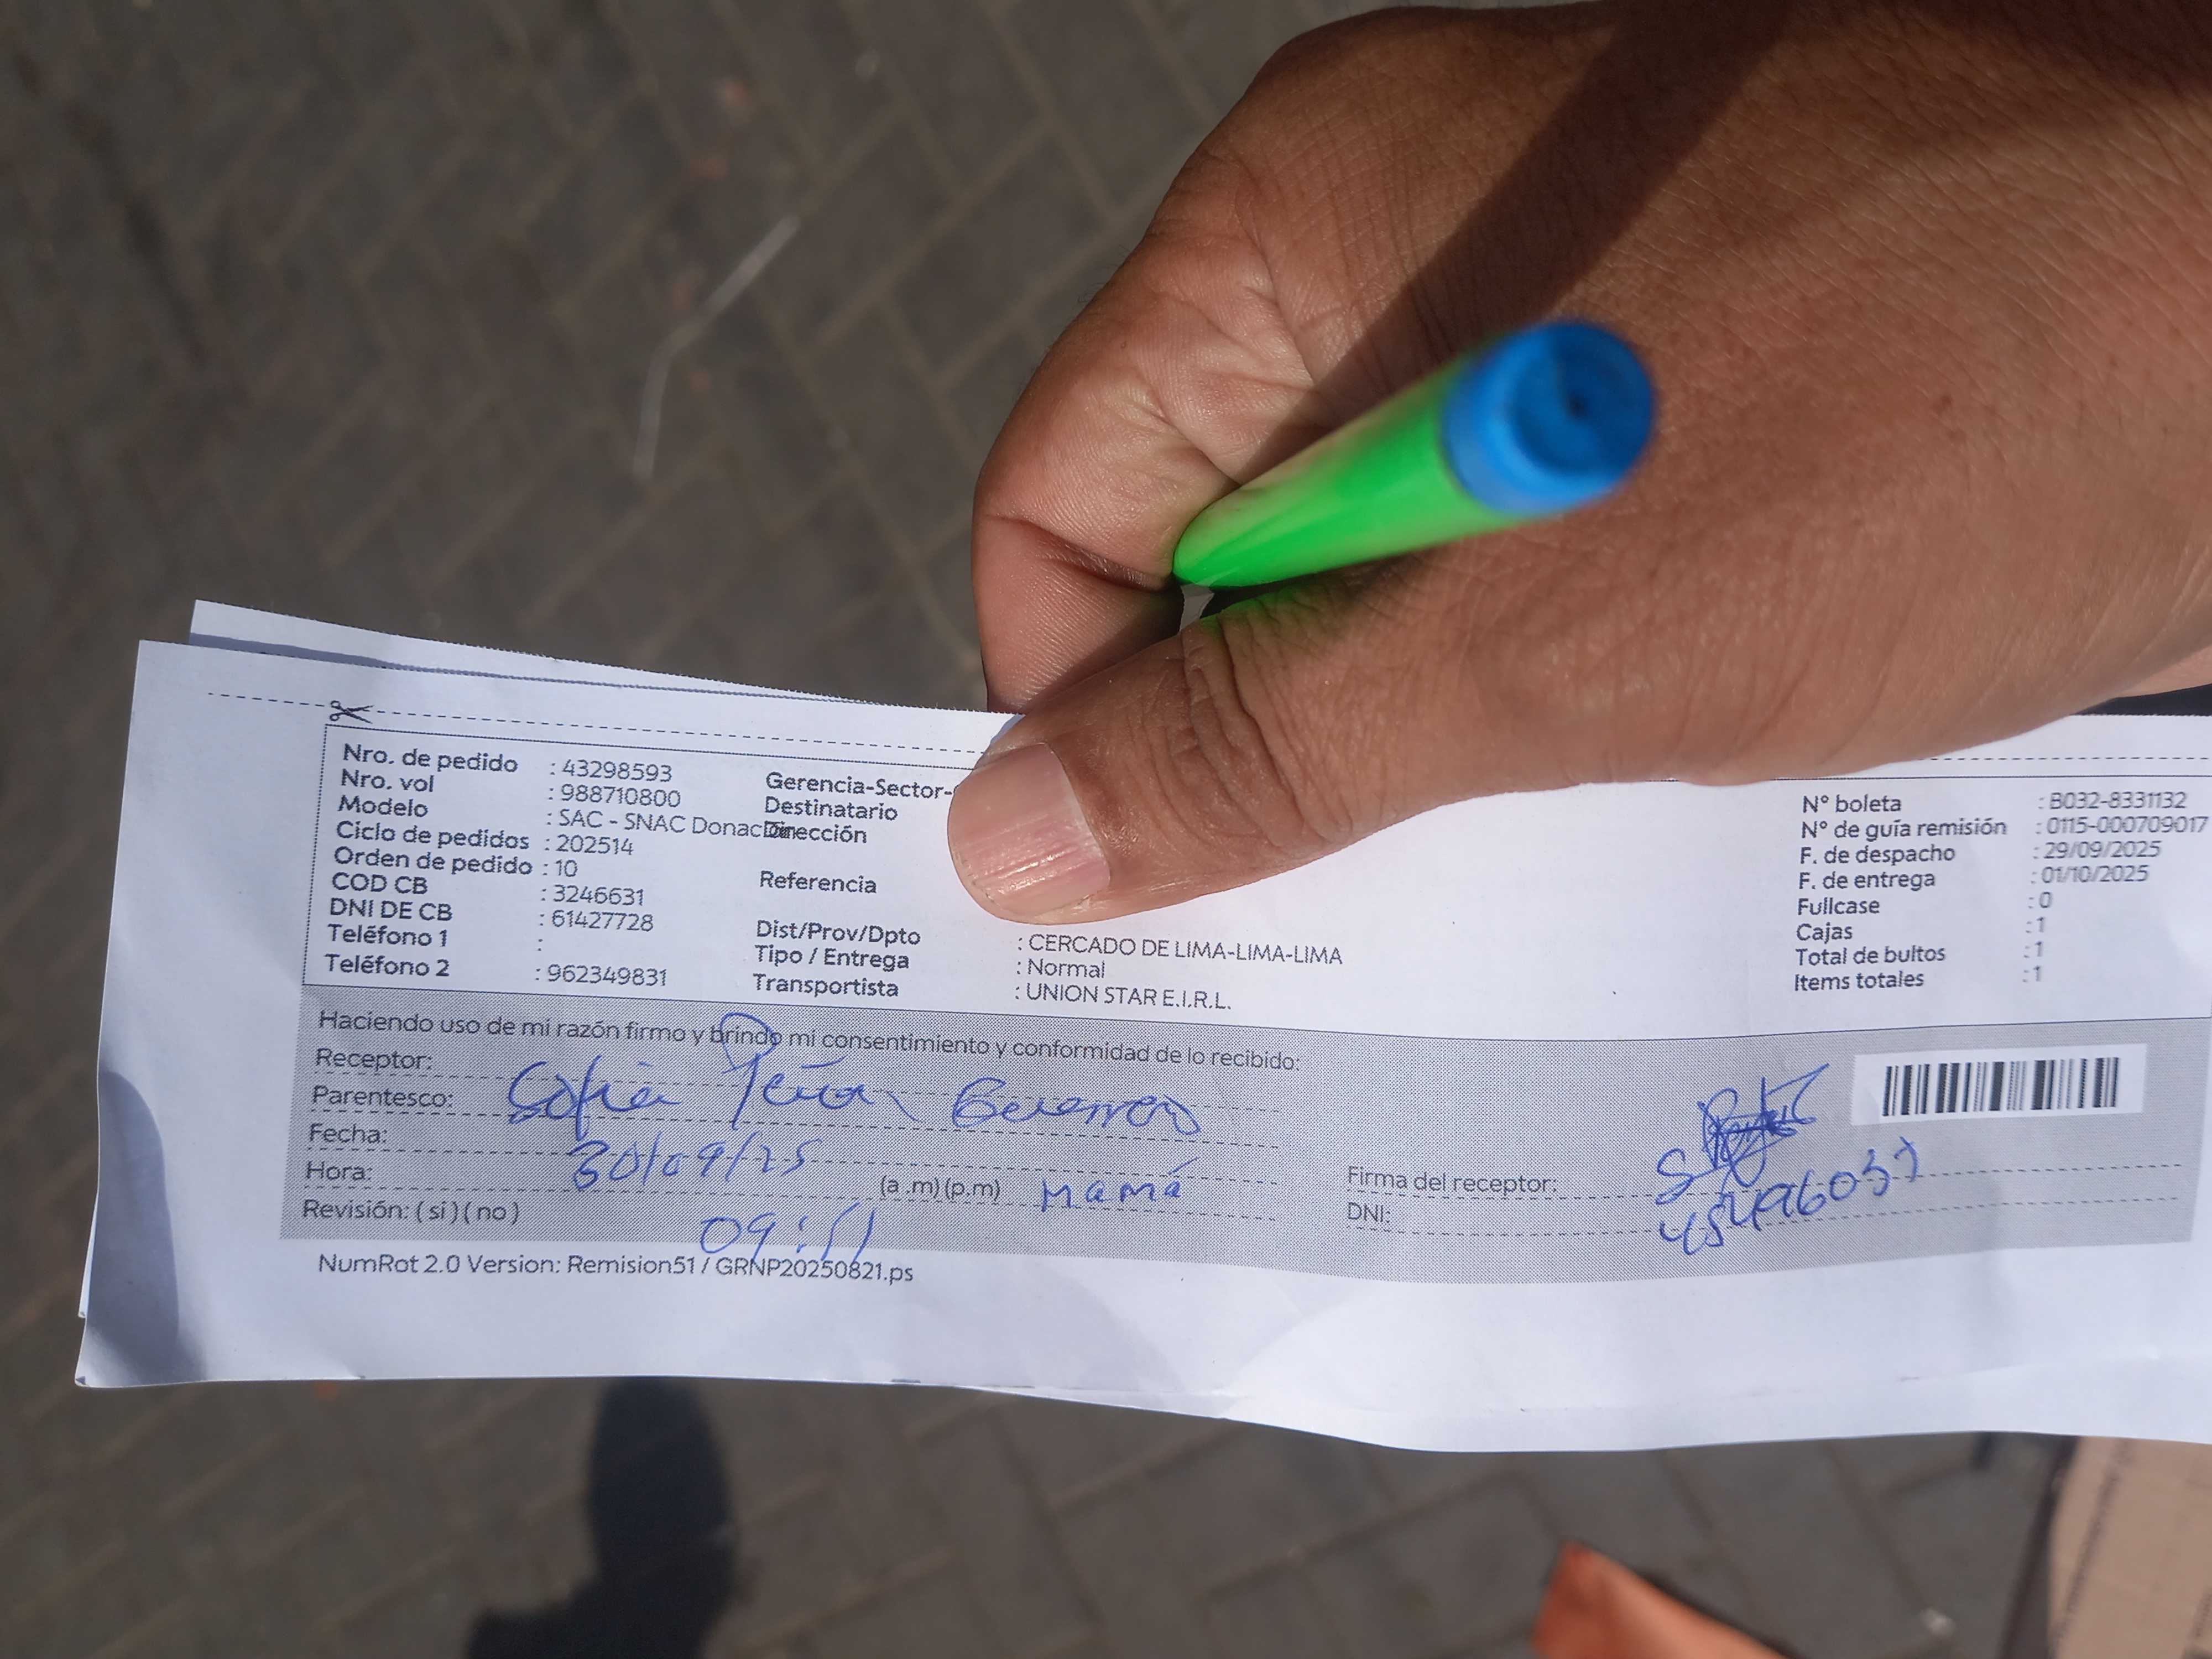 Nro. de pedido : 43298593
Nro. vol : 988710800
Modelo : SAC - SNAC Donac
Ciclo de pedidos : 202514
Orden de pedido : 10
COD CB : 3246631
DNI DE CB : 61427728
Teléfono 1 :
Teléfono 2 : 962349831
Gerencia-Sector-
Destinatario
Dirección
Referencia
Dist/Prov/Dpto : CERCADO DE LIMA-LIMA-LIMA
Tipo / Entrega : Normal
Transportista : UNION STAR E.I.R.L.
N° boleta : B032-8331132
N° de guía remisión : 0115-000709017
F. de despacho : 29/09/2025
F. de entrega : 01/10/2025
Fullcase : 0
Cajas : 1
Total de bultos : 1
Items totales : 1
Haciendo uso de mi razón firmo y brindo mi consentimiento y conformidad de lo recibido:
Receptor:
Parentesco: Sofia Peña Guerrero
Fecha: 30/09/25
Hora: (a .m) (p.m) Mamá
Revisión: ( si ) ( no ) 09:51
Firma del receptor:
DNI:
NumRot 2.0 Version: Remision51 / GRNP20250821.ps